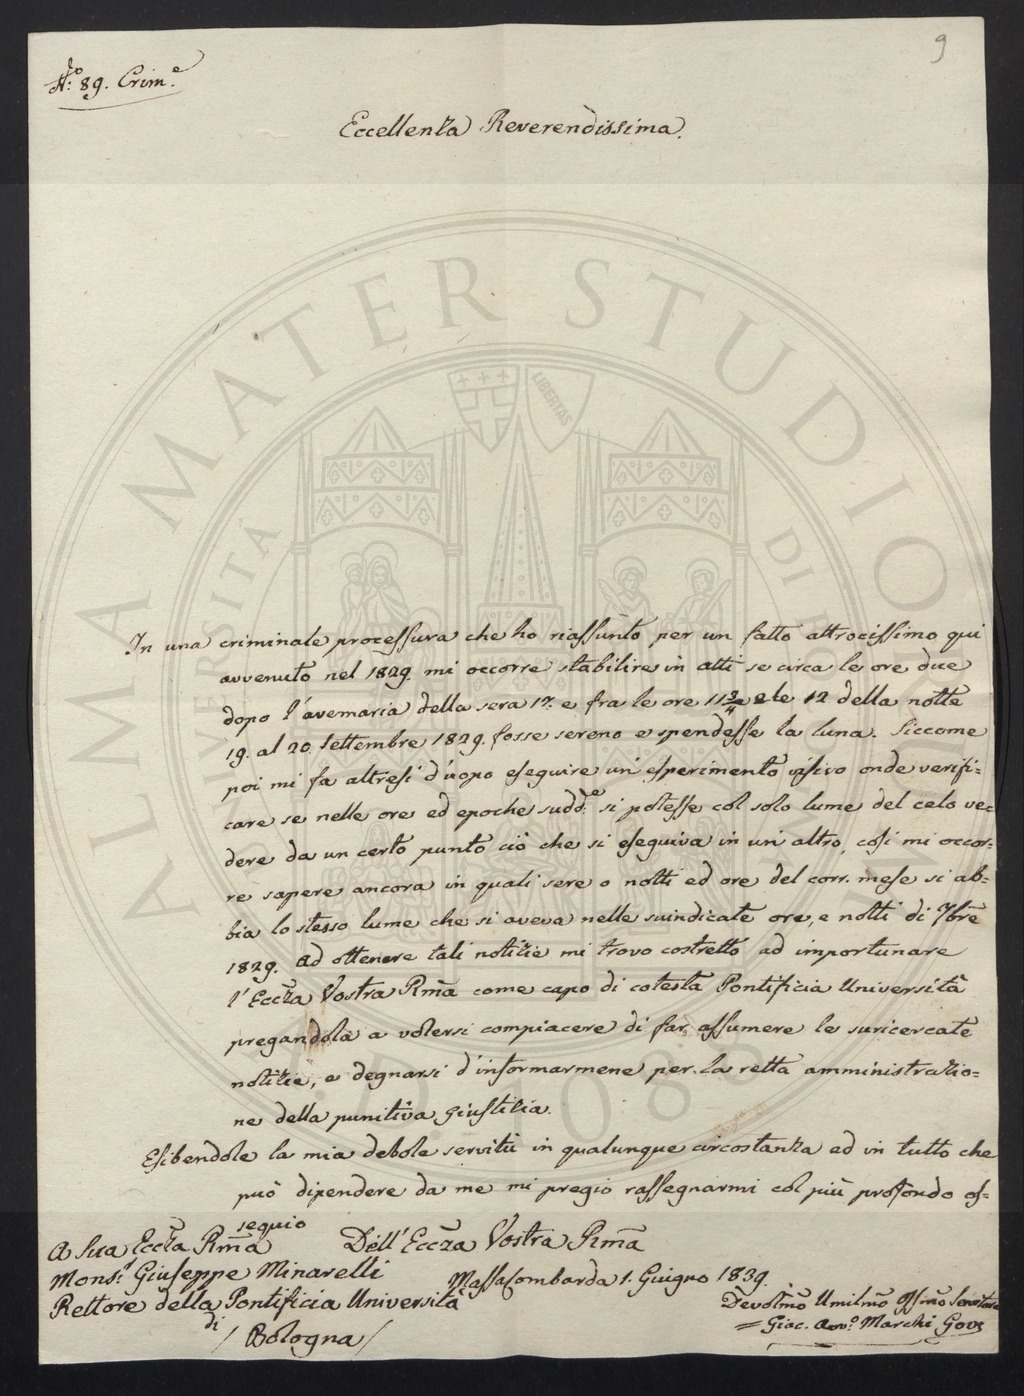 9
N.º 89. Crim.e
Eccellenza Reverendissima.
In una criminale processura che ho riassunto per un fatto attrocissimo qui
avvenuto nel 1829. mi occorre stabilire in atti se circa le ore due
dopo l'avemaria della sera 19. e fra le ore 11 3/4 e le 12 della notte
19. al 20. Settembre 1829. fosse sereno e spendesse la luna. Siccome
poi mi fa altresì d'uopo eseguire un' esperimento visivo onde verifi=
care se nelle ore ed epoche sudd.e si potesse col solo lume del celo ve=
dere da un certo punto ciò che si eseguiva in un' altro, così mi occor=
re sapere ancora in quali sere o notti ed ore del corr. mese si ab=
bia lo stesso lume che si aveva nelle suindicate ore, e notti di 7bre
1829. Ad ottenere tali notizie mi trovo costretto ad importunare
l'Eccza Vostra Rma come capo di cotesta Pontificia Università
pregandola a volersi compiacere di far assumere le suricercate
notizie, e degnarsi d'informarmene per la retta amministrazio=
ne della punitiva giustizia.
Esibendole la mia debole servitù in qualunque circostanza ed in tutto che
può dipendere da me mi pregio rassegnarmi col più profondo os=
sequio
Dell' Eccza Vostra Rma
A Sua Eccza Rma
Mons.r Giuseppe Minarelli
Rettore della Pontificia Università
di
/ Bologna /
Massalombarda 1. Giugno 1839.
Devotmo Umilmo Ossmo Servitore
= Giac. Avv.o Marchi Gove
ALMA MATER STUDIORUM
UNIVERSITÀ DI BOLOGNA
LIBERTAS
A.D. 1088